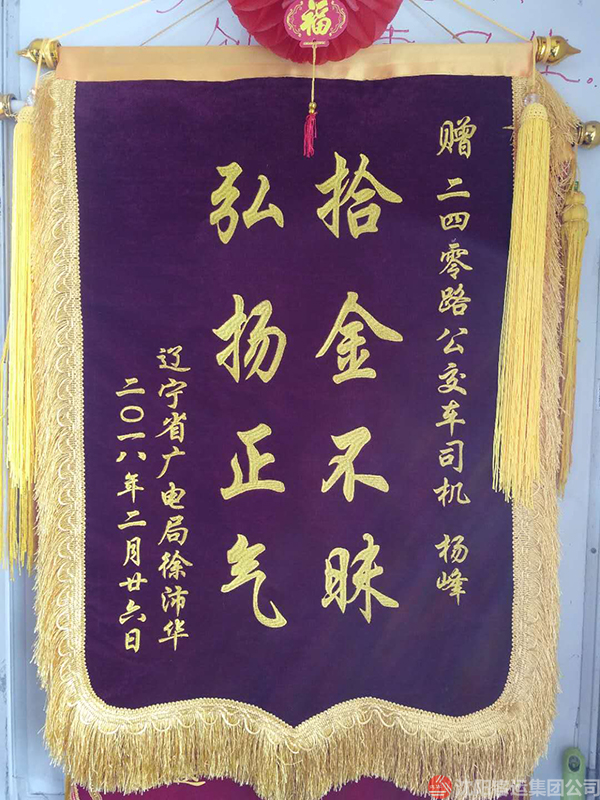 福
赠 二四零路公交车司机 杨峰
拾金不昧
弘扬正气
辽宁省广电局徐沛华
二〇一八年二月廿六日
沈阳客运集团公司